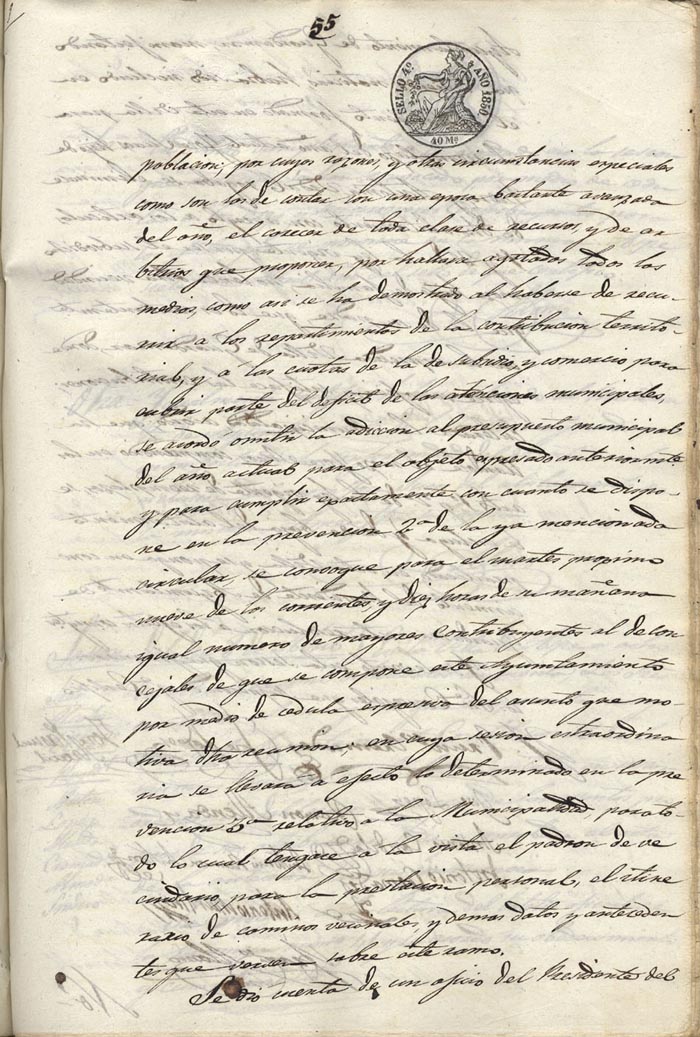 55
SELLO 4º AÑO 1850
40 Ms
poblacion; por cuyas razones, y otras circunstancias especiales
como son las de contar con una epoca bastante avanzada
del año, el carecer de toda clase de recursos, y de ar
bitrios que proponer, por hallarse agotados todos los
medios, como asi se ha demostrado al haberse de recu-
rrir a los repartimientos de la contribucion territo-
rial, y a las cuotas de la de subsidio y comercio para
cubrir parte del deficit de las atenciones municipales,
se acordo omitir la adiccion al presupuesto municipal
del año actual para el objeto espresado anteriormte
y para cumplir exactamente con cuanto se dispo-
ne en la prevencion 2ª de la ya mencionada
circular, se convoque para el martes proximo
nueve de los corrientes y diez horas de su mañana
igual numero de mayores contribuyentes al de con
cejales de que se compone este Ayuntamiento
por medio de cedula espresiva del asunto que mo-
tiva dha reunion; en cuya sesion estraordina
ria se llevara a efecto lo determinado en la pre
vencion 3ª relativo a la Municipalidad, para to-
do lo cual tengase a la vista el padron de ve
cindario, para la prestacion personal, el itine
rario de caminos vecinales, y demas datos y anteceden
tes que versen sobre este ramo.
Se dio cuenta de un oficio del Presidente del